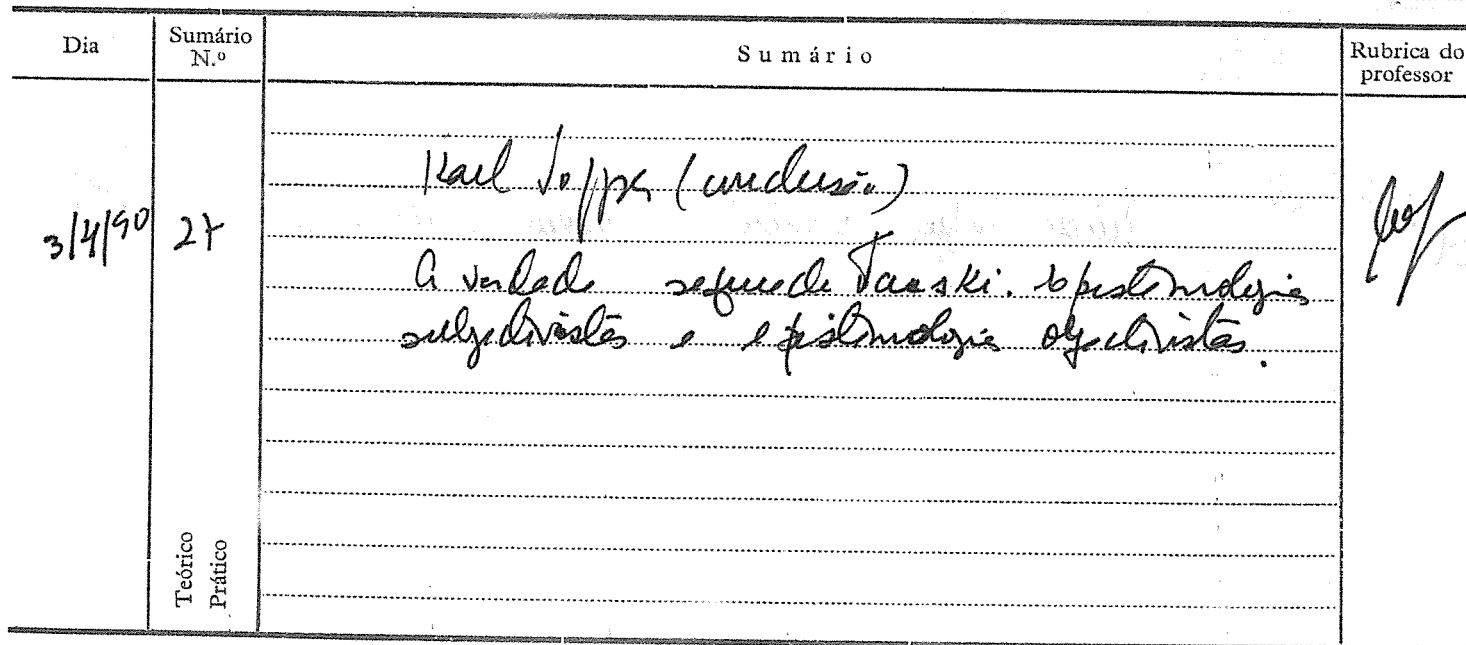 Dia
Sumário N.º
Sumário
Rubrica do professor
3/4/90
27
Karl Popper (conclusão)
A verdade segundo Tarski. Epistemologias
subjectivistas e epistemologias objectivistas.
Teórico
Prático